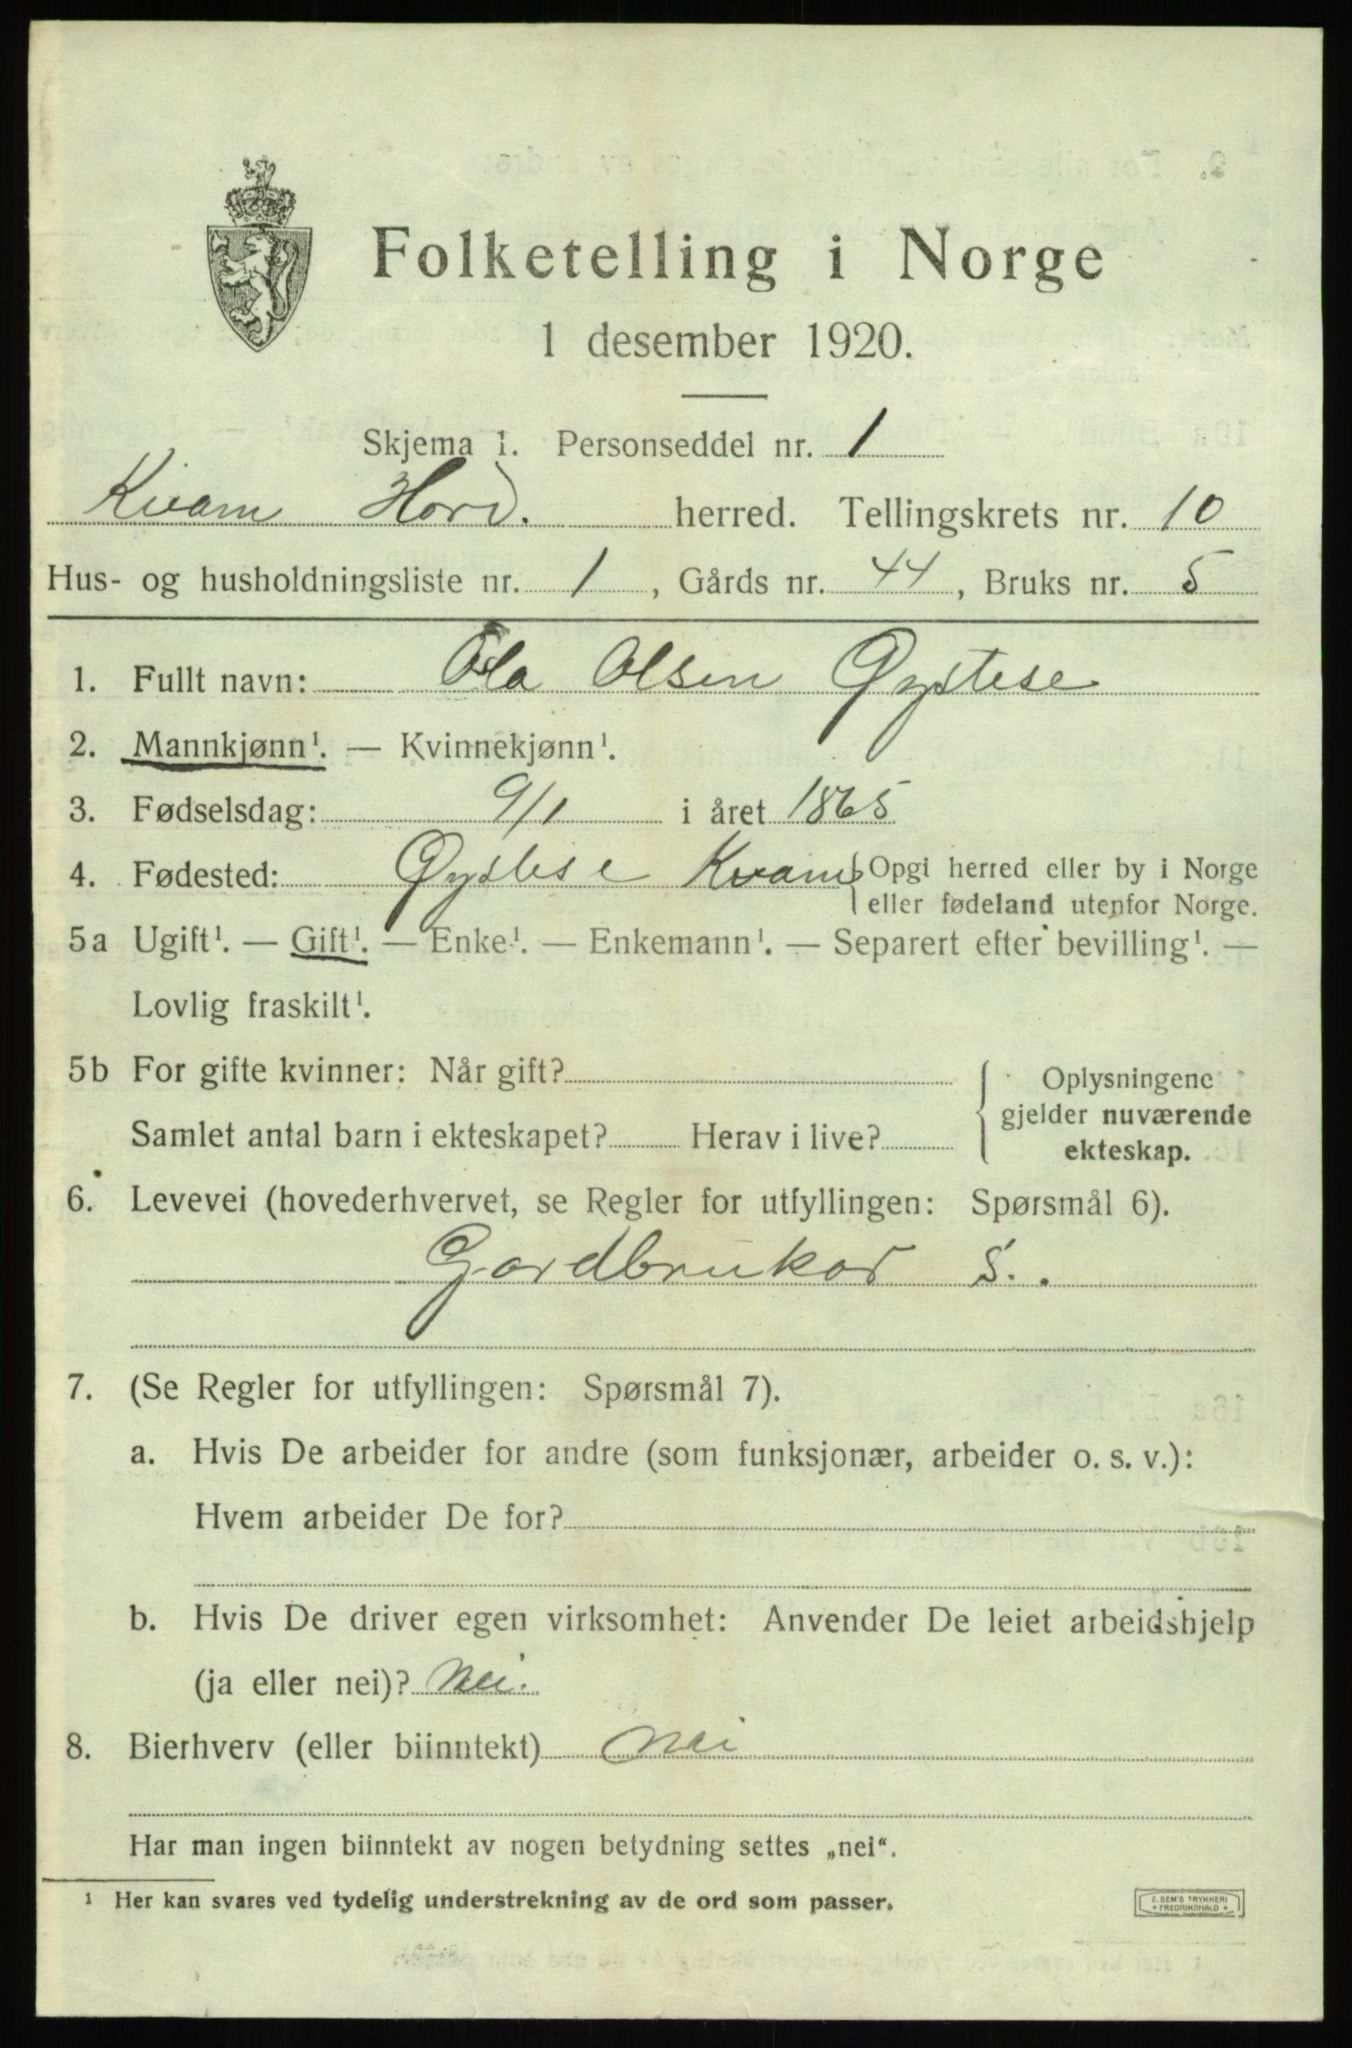 Folketelling i Norge
1 desember 1920.
Skjema 1. Personseddel nr. 1
Kvam Hord. herred. Tellingskrets nr. 10
Hus- og husholdningsliste nr. 1, Gårds nr. 44, Bruks nr. 5
1. Fullt navn: Ola Olsen Øystese
2. Mannkjønn¹. — Kvinnekjønn¹.
3. Fødselsdag: 9/1 i året 1865
4. Fødested: Øystese Kvam { Opgi herred eller by i Norge
eller fødeland utenfor Norge.
5a Ugift¹. — Gift¹. — Enke¹. — Enkemann¹. — Separert efter bevilling¹. —
Lovlig fraskilt¹.
5b For gifte kvinner: Når gift?
Samlet antal barn i ekteskapet? Herav i live?
{ Oplysningene
gjelder nuværende
ekteskap.
6. Levevei (hovederhvervet, se Regler for utfyllingen: Spørsmål 6).
Gardbrukar S.
7. (Se Regler for utfyllingen: Spørsmål 7).
a. Hvis De arbeider for andre (som funksjonær, arbeider o. s. v.):
Hvem arbeider De for?
b. Hvis De driver egen virksomhet: Anvender De leiet arbeidshjelp
(ja eller nei)? Nei.
8. Bierhverv (eller biinntekt) Nei
Har man ingen biinntekt av nogen betydning settes „nei“.
¹ Her kan svares ved tydelig understrekning av de ord som passer.
E. SEM'S TRYKKERI
FREDRIKSHALD